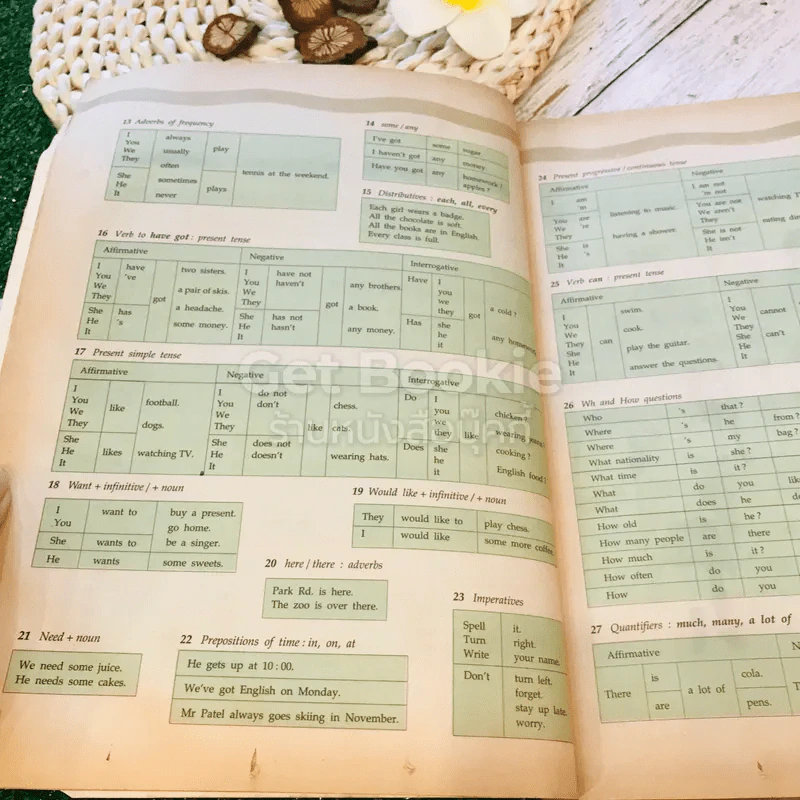 13 Adverbs of frequency
I always
You usually play
We
They often
tennis at the weekend.
She sometimes
He plays
It never
14 some / any
I've got some sugar
I haven't got any money.
Have you got any homework?
apples?
15 Distributives : each, all, every
Each girl wears a badge.
All the chocolate is soft.
All the books are in English.
Every class is full.
16 Verb to have got : present tense
Affirmative Negative Interrogative
I have two sisters. I have not any brothers. Have I
You 've a pair of skis. You haven't you
We We we a cold?
They got They got a book. they got
She has a headache. She has not Has she
He 's some money. He hasn't any money. he
It It it
17 Present simple tense
Affirmative Negative Interrogative
I football. I do not chess. Do I chicken?
You like You don't you
We dogs. We like cats. we like
They They they cooking?
She She does not Does she
He likes watching TV. He doesn't wearing hats. he English food?
It It it
18 Want + infinitive / + noun
I want to buy a present.
You go home.
She wants to be a singer.
He wants some sweets.
19 Would like + infinitive / + noun
They would like to play chess.
I would like some more
20 here / there : adverbs
Park Rd. is here.
The zoo is over there.
21 Need + noun
We need some juice.
He needs some cakes.
22 Prepositions of time : in, on, at
He gets up at 10 : 00.
We've got English on Monday.
Mr Patel always goes skiing in November.
23 Imperatives
Spell it.
Turn right.
Write your name.
Don't turn left.
forget.
stay up late.
worry.
24 Present progressive / continuous tense
Affirmative Negative
I am I am not
'm 'm not
You are listening to music. You are not watching
We 're We aren't
They They
She is having a shower. She is not eating
He 's He isn't
It It
25 Verb can : present tense
Affirmative Negative
I swim. I
You You cannot
We cook. We
They can They
She play the guitar. She can't
He He
It answer the questions. It
26 Wh and How questions
Who 's that?
Where 's he from?
Where 's my bag?
What nationality is she?
What time is it?
What do you
What does he
How old is he?
How many people are there
How much is it?
How often do you
How do you
27 Quantifiers : much, many, a lot of
Affirmative
There is a lot of cola.
are pens.
Get Bookie
ร้านหนังสือบุ๊คกี้